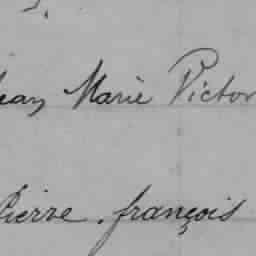 Jean Marie Victor
Pierre. françois